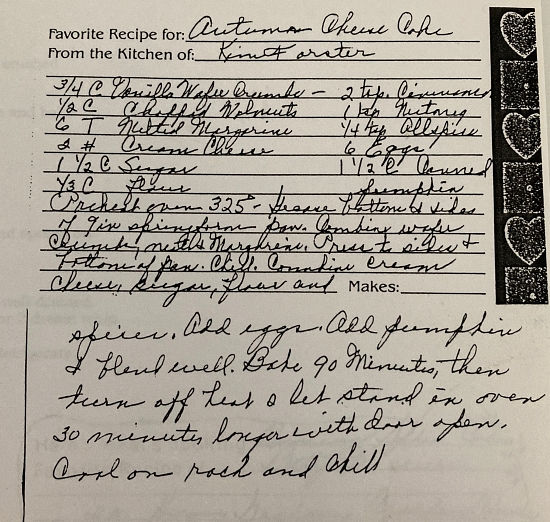 Favorite Recipe for: Autumn Cheese Cake
From the Kitchen of: Kim Forster
3/4 C Vanilla Wafer Crumbs — 2 tsp. Cinnamon
1/2 C Chopped Walnuts 1 tsp Nutmeg
6 T Melted Margarine 1/4 tsp Allspice
2 # Cream Cheese 6 Eggs
1 1/2 C Sugar 1 1/2 C Canned
1/3 C Flour pumpkin
Preheat oven 325° - Grease bottom & sides
of 9in springform pan. Combine wafer
Crumbs, nuts & Margarine. Press to sides &
bottom of pan. Chill. Combine cream
cheese, sugar, flour and Makes:
spices. Add eggs. Add pumpkin
& blend well. Bake 90 Minutes, then
turn off heat & let stand in oven
30 minutes longer with door open.
Cool on rack and chill